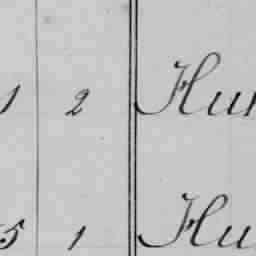 1 2 Hun
5 1 Hu